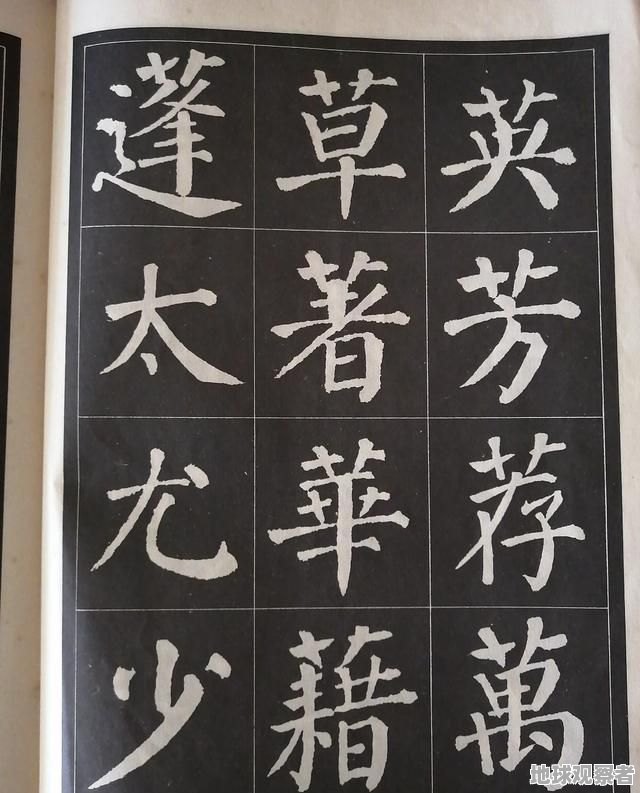 英芳荐萬
草著華藉
蓬太尤少
地球观察者